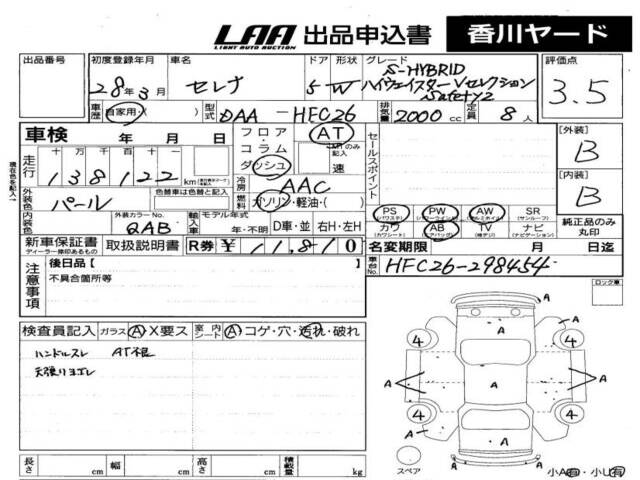 LAA 出品申込書 香川ヤード
LIGHT AUTO AUCTION
出品番号 初度登録年月 車名 ドア 形状 グレード 評価点
28年3月 セレナ 5 W S-HYBRID
ハイウェイスターVセレクション
Safety2
3.5
車歴 自家用・( ) 型式 DAA-HFC26 排気量 2000cc 定員 8人
車検 年 月 日 フロア・コラム・ダッシュ AT ATのみ記入 速
セールスポイント
[外装] B
走行 十 万 千 百 十 一
138122 km
外装色 パール 色替車は色替と記入
冷房 AAC
燃料 ガソリン・軽油・( )
[内装] B
内装色 外装カラーNo. QAB 輸入車 モデル年式 年・不明 D車・並 右H・左H
PS (パワステ) PW (パワーウインドウ) AW (アルミホイル) SR (サンルーフ)
カワ (カワシート) AB (エアバッグ) TV (地デジ) ナビ (ナビゲーション)
純正品のみ丸印
新車保証書 取扱説明書 R券 ¥11,810 名変期限 月 日迄
ディーラー捺印あるもの
注意事項 後日品[ ]
不具合箇所等
車台No. HFC26-298454
ロック車
検査員記入 ガラス A X要ス 室内シート A コゲ・穴・汚れ・破れ
ハンドルスレ AT不良
天張りヨゴレ
A
4 4
A A A A
4 4
A A
A
スペア
小A有・小U有
長さ cm 幅 cm 高さ cm 積載量 kg
現在色を記入